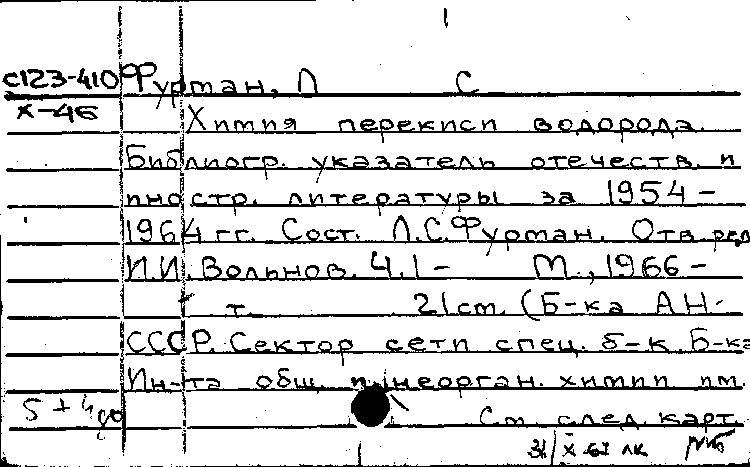 с123-410 Фурман, Л С
Х-46
Химия перекиси водорода.
Библиогр. указатель отечеств. и
иностр. литературы за 1954 -
1964 гг. Сост. Л.С.Фурман. Отв. ред.
И.И. Вольнов. Ч.1 - М., 1966 -
т. 21 см. (Б-ка АН
СССР. Сектор сети спец. б-к. Б-ка
Ин-та общ. и неорган. химии им.
См. след. карт.
31/X-67 лк